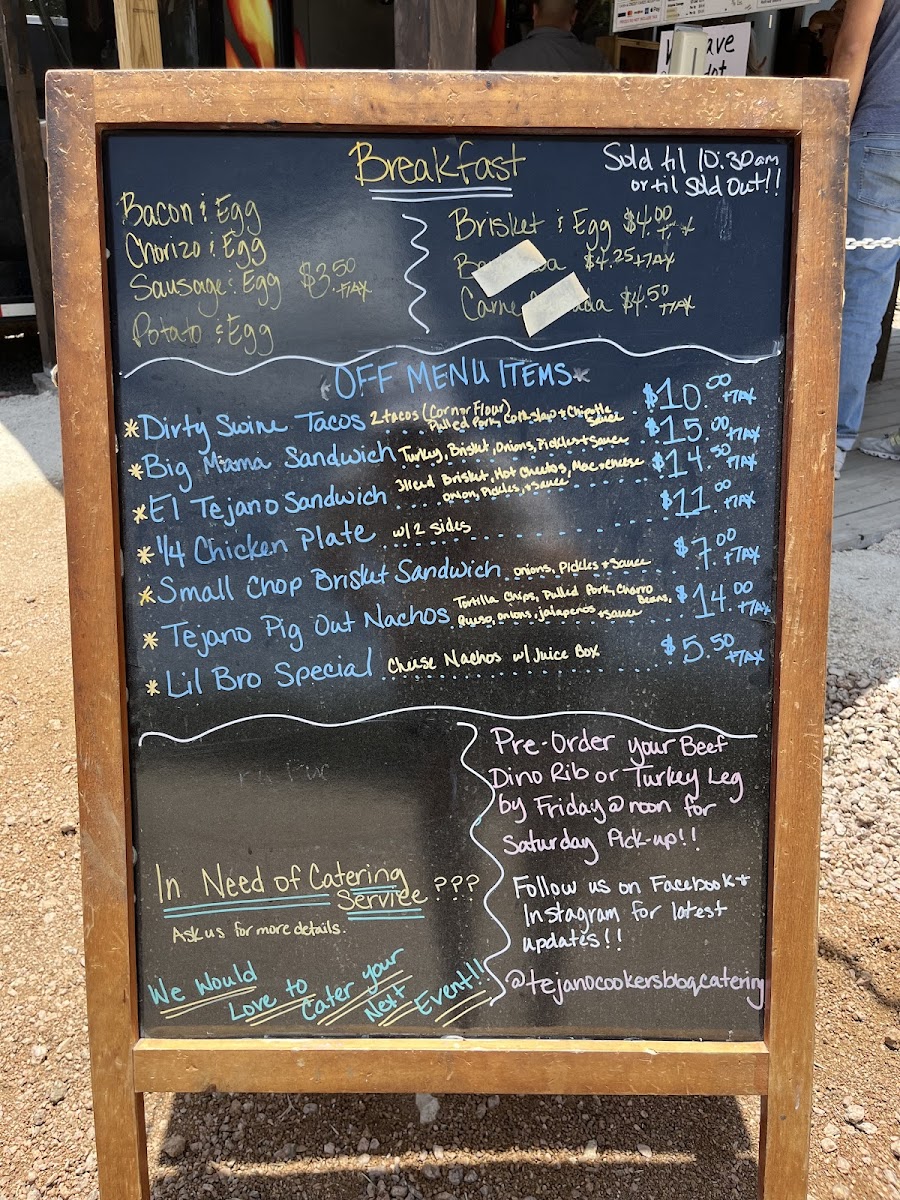 Breakfast
Sold til 10:30am
or til Sold Out!!
Bacon & Egg
Chorizo & Egg
Sausage & Egg $3.50 +TAX
Potato & Egg
Brisket & Egg $4.00 +TAX
$4.25 +TAX
Carne $4.50 +TAX
OFF MENU ITEMS
*Dirty Swine Tacos 2 tacos (Corn or Flour) Pulled Pork, Coleslaw + Chipotle Sauce $10.00 +TAX
*Big Mama Sandwich Turkey, Brisket, Onions, Pickles + Sauce $15.00 +TAX
*El Tejano Sandwich Sliced Brisket, Hot Cheetos, Mac + cheese onion, Pickles, + Sauce $14.50 +TAX
*1/4 Chicken Plate w/ 2 sides $11.00 +TAX
*Small Chop Brisket Sandwich onions, Pickles + Sauce $7.00 +TAX
*Tejano Pig Out Nachos Tortilla Chips, Pulled Pork, Charro Beans, Queso, onions, jalapeños + Sauce $14.00 +TAX
*Lil Bro Special Cheese Nachos w/ Juice Box $5.50 +TAX
In Need of Catering
Service ???
Ask us for more details.
We Would
Love to
Cater your
Next
Event!!
Pre-Order your Beef
Dino Rib or Turkey Leg
by Friday @ noon for
Saturday Pick-up!!
Follow us on Facebook +
Instagram for latest
updates!!
@tejanocookersbbqcatering